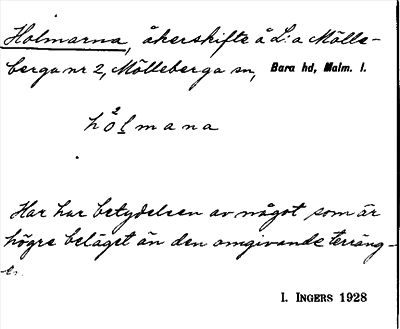 Holmarna, åkerskifte å L:a Mölle-
berga nr 2, Mölleberga sn, Bara hd, Malm. l.
hòlmana
Har har betydelsen av något som är
högre beläget än den omgivande terräng-
en.
I. INGERS 1928